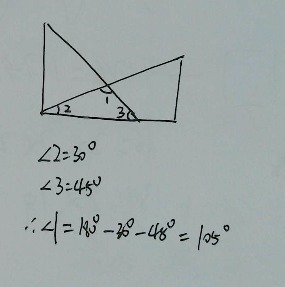 1
2
3
∠2=30°
∠3=45°
∴∠1=180°-30°-45°=105°